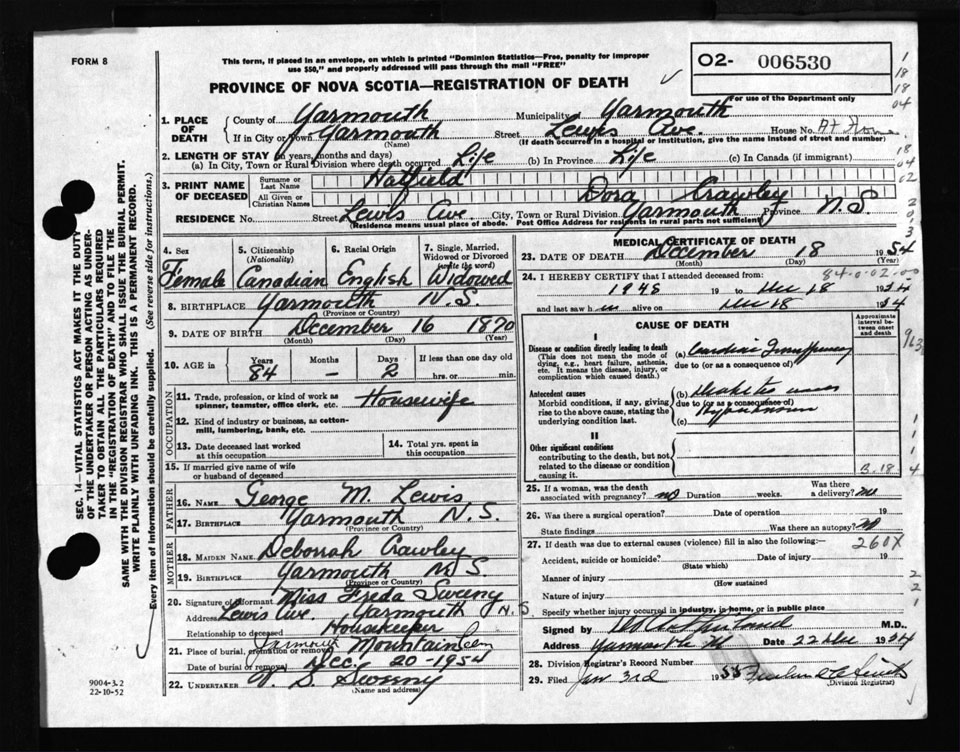 FORM 8
This form, if placed in an envelope, on which is printed "Dominion Statistics—Free, penalty for improper
use $50," and properly addressed will pass through the mail "FREE"
PROVINCE OF NOVA SCOTIA—REGISTRATION OF DEATH
O2- 006530
For use of the Department only
1. PLACE OF DEATH
County of Yarmouth Municipality Yarmouth
If in City or Town Yarmouth Street Lewis Ave. House No. At Home
(Name) (If death occurred in a hospital or institution, give the name instead of street and number)
2. LENGTH OF STAY (in years, months and days)
(a) In City, Town or Rural Division where death occurred Life (b) In Province Life (c) In Canada (if immigrant)
3. PRINT NAME OF DECEASED
Surname or Last Name Hatfield
All Given or Christian Names Dora Crawley
RESIDENCE No. Street Lewis Ave City, Town or Rural Division Yarmouth Province N.S.
(Residence means usual place of abode. Post Office Address for residents in rural parts not sufficient)
4. Sex Female
5. Citizenship (Nationality) Canadian
6. Racial Origin English
7. Single, Married, Widowed or Divorced (write the word) Widowed
8. BIRTHPLACE Yarmouth N.S.
(Province or Country)
9. DATE OF BIRTH December 16 1870
(Month) (Day) (Year)
10. AGE in Years 84 Months — Days 2 If less than one day old
hrs. or min.
OCCUPATION
11. Trade, profession, or kind of work as spinner, teamster, office clerk, etc. Housewife
12. Kind of industry or business, as cotton-mill, lumbering, bank, etc.
13. Date deceased last worked at this occupation
14. Total yrs. spent in this occupation
15. If married give name of wife or husband of deceased
FATHER
16. NAME George M. Lewis
17. BIRTHPLACE Yarmouth N.S.
(Province or Country)
MOTHER
18. MAIDEN NAME Deborrah Crawley
19. BIRTHPLACE Yarmouth N.S.
(Province or Country)
20. Signature of informant Miss Freda Sweeny
Address Lewis Ave. Yarmouth N.S.
Relationship to deceased Housekeeper
21. Place of burial, cremation or removal Mountain Cem
Date of burial or removal Dec. 20-1954
22. UNDERTAKER V. S. Sweeny
(Name and address)
MEDICAL CERTIFICATE OF DEATH
23. DATE OF DEATH December 18 1954
(Month) (Day)
84-0-02-00
24. I HEREBY CERTIFY that I attended deceased from:
1948 19 to Dec 18 1954
and last saw h alive on Dec 18 1954
CAUSE OF DEATH
Approximate interval between onset and death
I
Disease or condition directly leading to death
(This does not mean the mode of dying, e.g., heart failure, asthenia, etc. It means the disease, injury, or complication which caused death.)
(a) Cardiac
due to (or as a consequence of)
Antecedent causes
Morbid conditions, if any, giving rise to the above cause, stating the underlying condition last.
(b) Diabetes
due to (or as a consequence of)
(c)
II
Other significant conditions
contributing to the death, but not related to the disease or condition causing it.
B.18.
25. If a woman, was the death associated with pregnancy? no Duration weeks. Was there a delivery? no
26. Was there a surgical operation? Date of operation 19
State findings Was there an autopsy? no
27. If death was due to external causes (violence) fill in also the following: 260X
Accident, suicide or homicide? Date of injury 19
(State which)
Manner of injury
(How sustained
Nature of injury
Specify whether injury occurred in industry, in home, or in public place
Signed by M.D.
Address Yarmouth Date 22 Dec 1954
28. Division Registrar's Record Number
29. Filed Jan 3rd 1955
(Division Registrar)
SEC. 14—VITAL STATISTICS ACT MAKES IT THE DUTY
OF THE UNDERTAKER OR PERSON ACTING AS UNDER-
TAKER TO OBTAIN ALL THE PARTICULARS REQUIRED
IN THE "REGISTRATION OF DEATH" AND TO FILE THE
SAME WITH THE DIVISION REGISTRAR WHO SHALL ISSUE THE BURIAL PERMIT.
WRITE PLAINLY WITH UNFADING INK. THIS IS A PERMANENT RECORD.
Every item of information should be carefully supplied. (See reverse side for instructions.)
9004-3.2
22-10-52
1
18
18
04
18
04
02
2
0
3
3
963
1
1
1
4
2
2
1